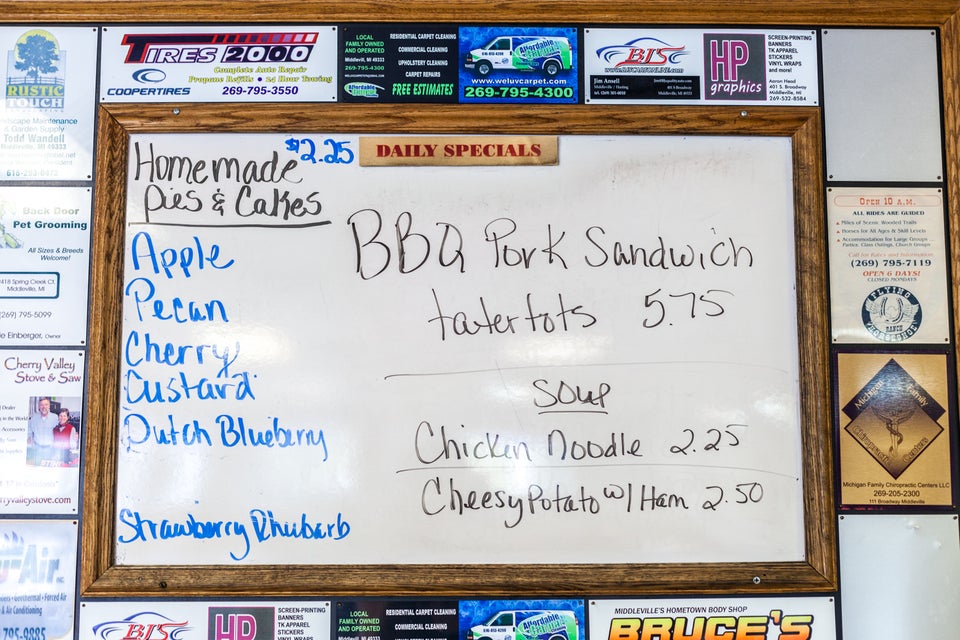 RUSTIC
TOUCH
Landscape Maintenance
& Garden Supply
Todd Wandell
Middleville, MI 49333
616-293-0472
TIRES 2000
Complete Auto Repair
Propane Refills • 24 Hour Towing
COOPERTIRES
269-795-3550
LOCAL
FAMILY OWNED
AND OPERATED
Middlevill, MI 49333
269-795-4300
RESIDENTIAL CARPET CLEANING
COMMERCIAL CLEANING
UPHOLSTERY CLEANING
CARPET REPAIRS
FREE ESTIMATES
Affordable
www.weluvcarpet.com
269-795-4300
BJS
Jim Ansell
HP
graphics
SCREEN-PRINTING
BANNERS
TK APPAREL
STICKERS
VINYL WRAPS
and more!
Aaron Head
401 S. Broadway
Middleville, MI
269-532-8584
Back Door
Pet Grooming
All Sizes & Breeds
Welcome!
418 Spring Creek Ct.
Middleville, MI
(269) 795-5099
ie Einberger, Owner
Cherry Valley
Stove & Saw
Dealer
rryvalleystove.com
-Air
& Air Conditioning
795-9885
DAILY SPECIALS
Homemade $2.25
Pies & Cakes
Apple
Pecan
Cherry
Custard
Dutch Blueberry
Strawberry Rhubarb
BBQ Pork Sandwich
tatertots 5.75
Soup
Chicken Noodle 2.25
Cheesy Potato w/ Ham 2.50
OPEN 10 A.M.
ALL RIDES ARE GUIDED
Miles of Scenic Wooded Trails
Horses for All Ages & Skill Levels
Accommodation for Large Groups ...
Parties, Class Outings, Church Groups
Call for Rates and Information
(269) 795-7119
OPEN 6 DAYS!
CLOSED MONDAYS
FLYING
HORSESHOE
RANCH
Michigan Family
Chiropractic Centers
Michigan Family Chiropractic Centers LLC
269-205-2300
111 Broadway Middleville
BJS
HP
SCREEN-PRINTING
BANNERS
TK APPAREL
STICKERS
VINYL WRAPS
LOCAL
FAMILY OWNED
AND OPERATED
RESIDENTIAL CARPET CLEANING
COMMERCIAL CLEANING
UPHOLSTERY CLEANING
Affordable
MIDDLEVILLE'S HOMETOWN BODY SHOP
BRUCE'S